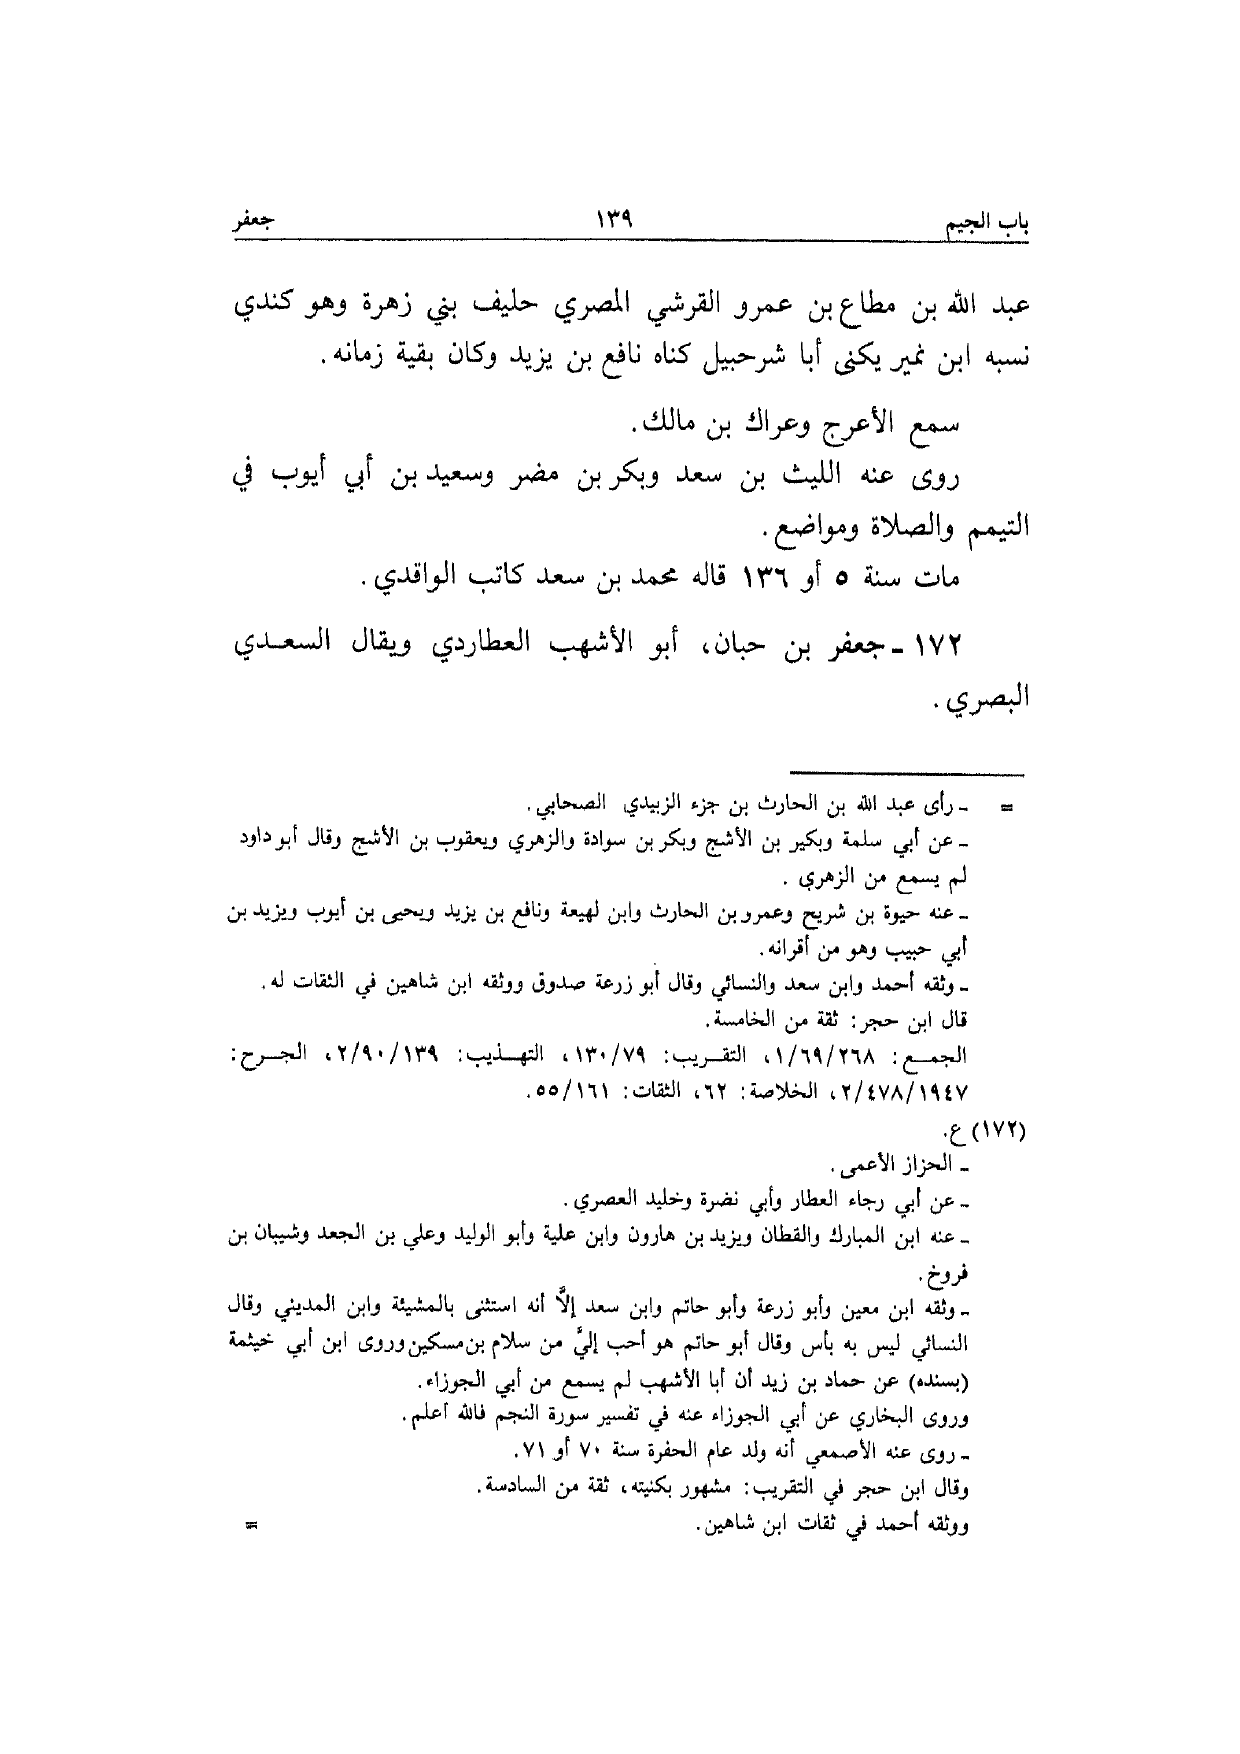 باب الجيم ١٣٩ جعفر
عبد الله بن مطاع بن عمرو القرشي المصري حليف بني زهرة وهو كندي
نسبه ابن نمير يكنى أبا شرحبيل كناه نافع بن يزيد وكان بقية زمانه.
سمع الأعرج وعراك بن مالك.
روى عنه الليث بن سعد وبكر بن مضر وسعيد بن أبي أيوب في
التيمم والصلاة ومواضع.
مات سنة ٥ أو ١٣٦ قاله محمد بن سعد كاتب الواقدي.
١٧٢ - جعفر بن حبان، أبو الأشهب العطاردي ويقال السعدي
البصري.
= - رأى عبد الله بن الحارث بن جزء الزبيدي الصحابي.
- عن أبي سلمة وبكير بن الأشج وبكر بن سوادة والزهري ويعقوب بن الأشج وقال أبو داود
لم يسمع من الزهري.
- عنه حيوة بن شريح وعمرو بن الحارث وابن لهيعة ونافع بن يزيد ويحيى بن أيوب ويزيد بن
أبي حبيب وهو من أقرانه.
- وثقه أحمد وابن سعد والنسائي وقال أبو زرعة صدوق ووثقه ابن شاهين في الثقات له.
قال ابن حجر: ثقة من الخامسة.
الجمع: ١/٦٩/٢٦٨، التقريب: ١٣٠/٧٩، التهذيب: ٢/٩٠/١٣٩، الجرح:
٢/٤٧٨/١٩٤٧، الخلاصة: ٦٢، الثقات: ٥٥/١٦١.
(١٧٢) ع.
- الحزاز الأعمى.
- عن أبي رجاء العطار وأبي نضرة وخليد العصري.
- عنه ابن المبارك والقطان ويزيد بن هارون وابن علية وأبو الوليد وعلي بن الجعد وشيبان بن
فروخ.
- وثقه ابن معين وأبو زرعة وأبو حاتم وابن سعد إلاَّ أنه استثنى بالمشيئة وابن المديني وقال
النسائي ليس به بأس وقال أبو حاتم هو أحب إليَّ من سلام بن مسكين وروى ابن أبي خيثمة
(بسنده) عن حماد بن زيد أن أبا الأشهب لم يسمع من أبي الجوزاء.
وروى البخاري عن أبي الجوزاء عنه في تفسير سورة النجم فالله أعلم.
- روى عنه الأصمعي أنه ولد عام الحفرة سنة ٧٠ أو ٧١.
وقال ابن حجر في التقريب: مشهور بكنيته، ثقة من السادسة.
ووثقه أحمد في ثقات ابن شاهين. =